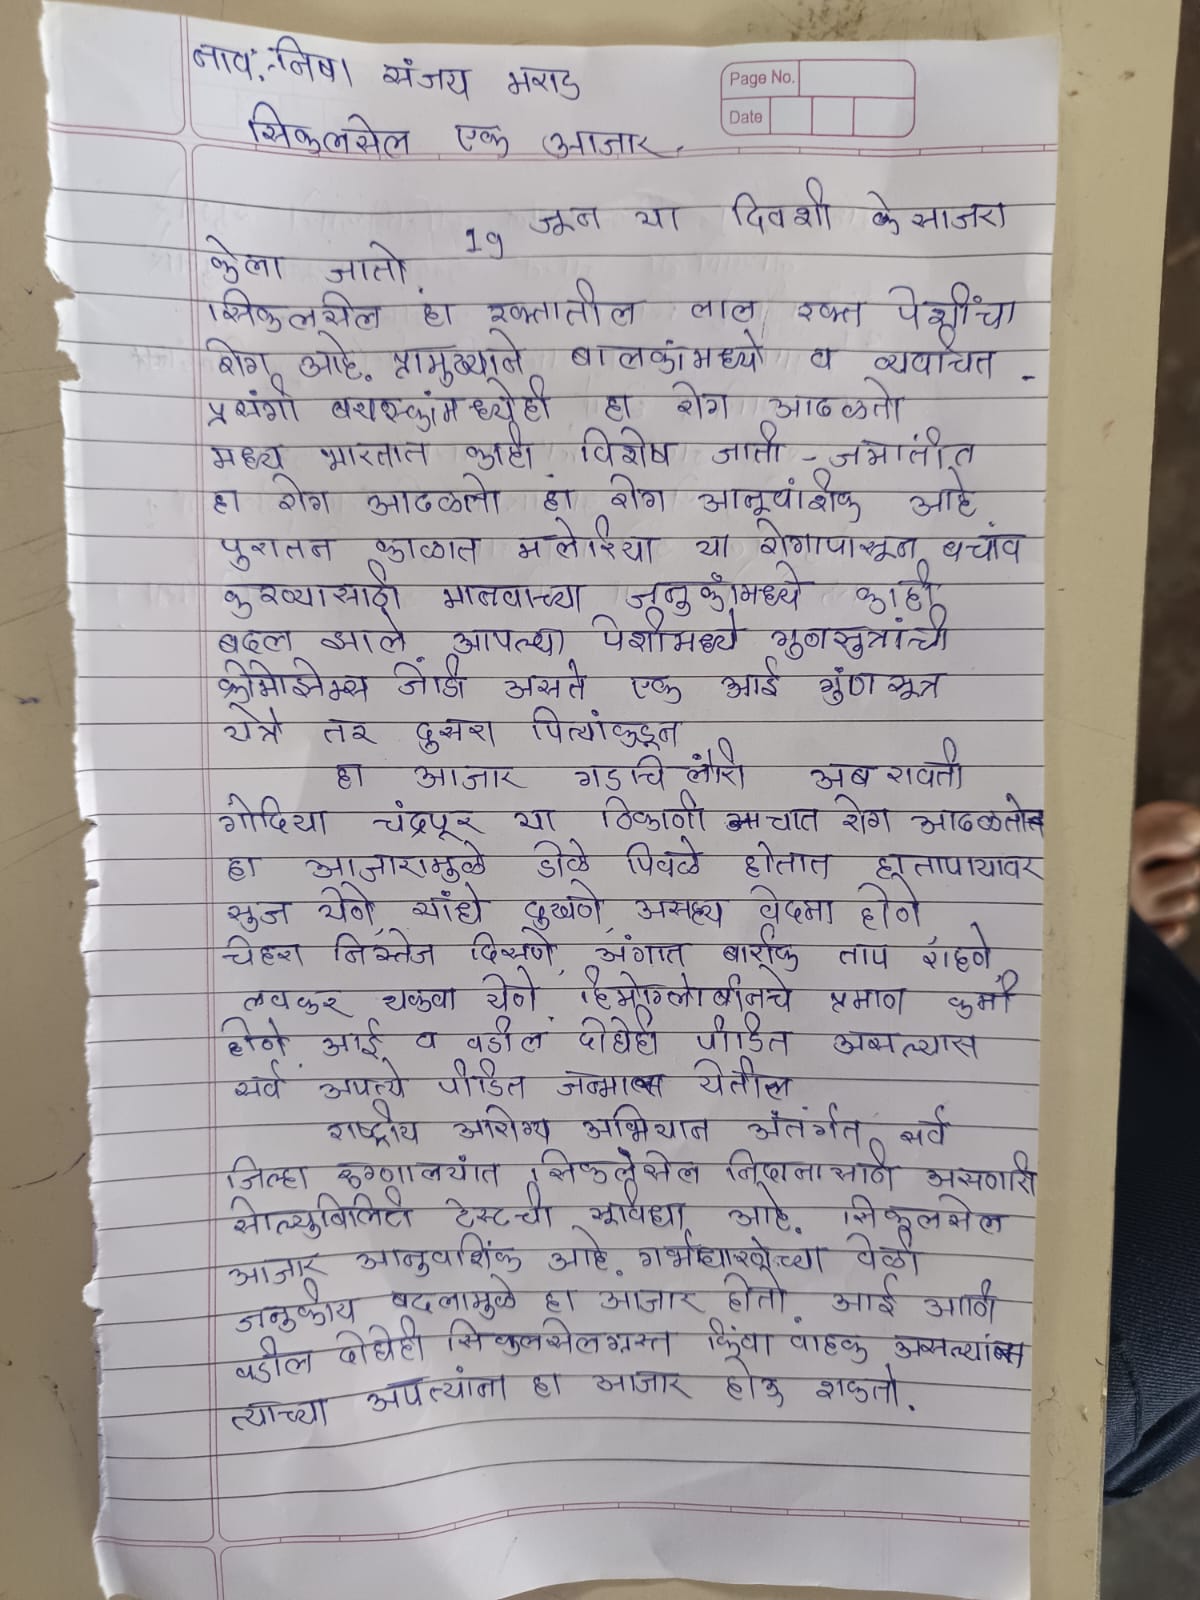 नाव:- निषा संजय मराड
Page No.
Date
सिकलसेल एक आजार.
19 जून या दिवशी के साजरा
केला जातो.
सिकलसेल हा रक्तातील लाल रक्त पेशींचा
रोग आहे. प्रामुख्याने बालकांमध्ये व क्वचित
प्रसंगी वयस्कांमध्येही हा रोग आढळतो
मध्य भारतात काही विशेष जाती - जमातीत
हा रोग आढळतो हा रोग आनूवांशिक आहे
पुरातन काळात मलेरिया या रोगापासून बचाव
करण्यासाठी मानवाच्या जनुकांमध्ये काही
बदल झाले आपल्या पेशीमध्ये गुणसुत्रांची
क्रोमोझोम्स जोडी असते एक आई गुंण सूत्र
येत्रे तर दुसरा पित्यांकडून
हा आजार गडचिलोरी
गोंदिया चंद्रपूर या ठिकाणी रोग आढळतो
हा आजारामुळे डोळे पिवळे होतात हातापायावर
सुज येणे, सांधे दुखणे, असह्य वेदना होणे,
चेहरा निस्तेज दिसणे, अंगात बारीक ताप राहणे,
लवकर थकवा येणे, हिमोग्लोबीनचे प्रमाण कमी
होणे, आई व वडील दोघेही पीडित असल्यास
सर्व अपत्ये पीडित जन्मास येतील
राष्ट्रीय आरोग्य अभियान अंतर्गत सर्व
जिल्हा रुग्णालयांत सिकलसेल निदानासाठी असणारी
सोल्युबिलिटी टेस्टची सुविधा आहे. सिकलसेल
आजार आनुवशिंक आहे. गर्भधारणेच्या वेळी
जनुकीय बदलामुळे हा आजार होतो. आई आणि
वडील दोघेही सिकलसेलग्रस्त किंवा वाहक असल्यास
त्याच्या अपत्यांना हा आजार होऊ शकतो.